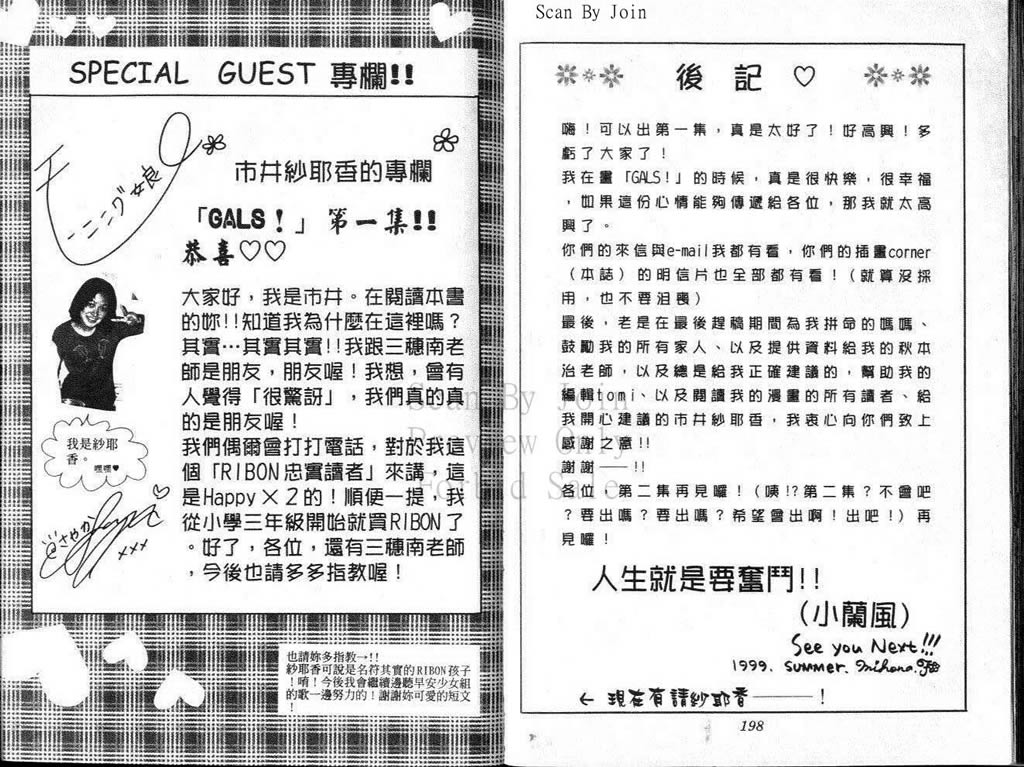 Scan By Join
後記♡
嗨！可以出第一集，真是太好了！好高興！多
虧了大家了！
我在畫「GALS!」的時候，真是很快樂，很幸福
，如果這份心情能夠傳遞給各位，那我就太高
興了。
你們的來信與e-mail我都有看，你們的插畫corner
（本誌）的明信片也全部都有看！（就算沒採
用，也不要沮喪）
最後，老是在最後趕稿期間為我拼命的媽媽、
鼓勵我的所有家人、以及提供資料給我的秋本
治老師，以及總是給我正確建議的，幫助我的
編輯tomi、以及閱讀我的漫畫的所有讀者、給
我開心建議的市井紗耶香，我衷心向你們致上
感謝之意!!
謝謝——!!
各位，第二集再見囉！（咦!?第二集？不會吧
？要出嗎？要出嗎？希望會出啊！出吧！）再
見囉！
人生就是要奮鬥!!
（小蘭風）
See you Next!!!
1999. SUMMER. Mihona.
← 現在有請紗耶香———！
198
SPECIAL GUEST 專欄!!
モーニング女良
市井紗耶香的專欄
「GALS！」第一集!!
恭喜♡♡
大家好，我是市井。在閱讀本書
的妳!!知道我為什麼在這裡嗎？
其實…其實其實!!我跟三穗南老
師是朋友，朋友喔！我想，會有
人覺得「很驚訝」，我們真的真
的是朋友喔！
我們偶爾會打打電話，對於我這
個「RIBON忠實讀者」來講，這
是Happy×2的！順便一提，我
從小學三年級開始就買RIBON了
。好了，各位，還有三穗南老師
，今後也請多多指教喔！
我是紗耶
香。
嘿嘿♥
さやか
×××
也請妳多指教→!!
紗耶香可說是名符其實的RIBON孩子
！唷！今後我會繼續邊聽早安少女組
的歌一邊努力的！謝謝妳可愛的短文
！
Scan By Join
Preview Only
Forbid Sale